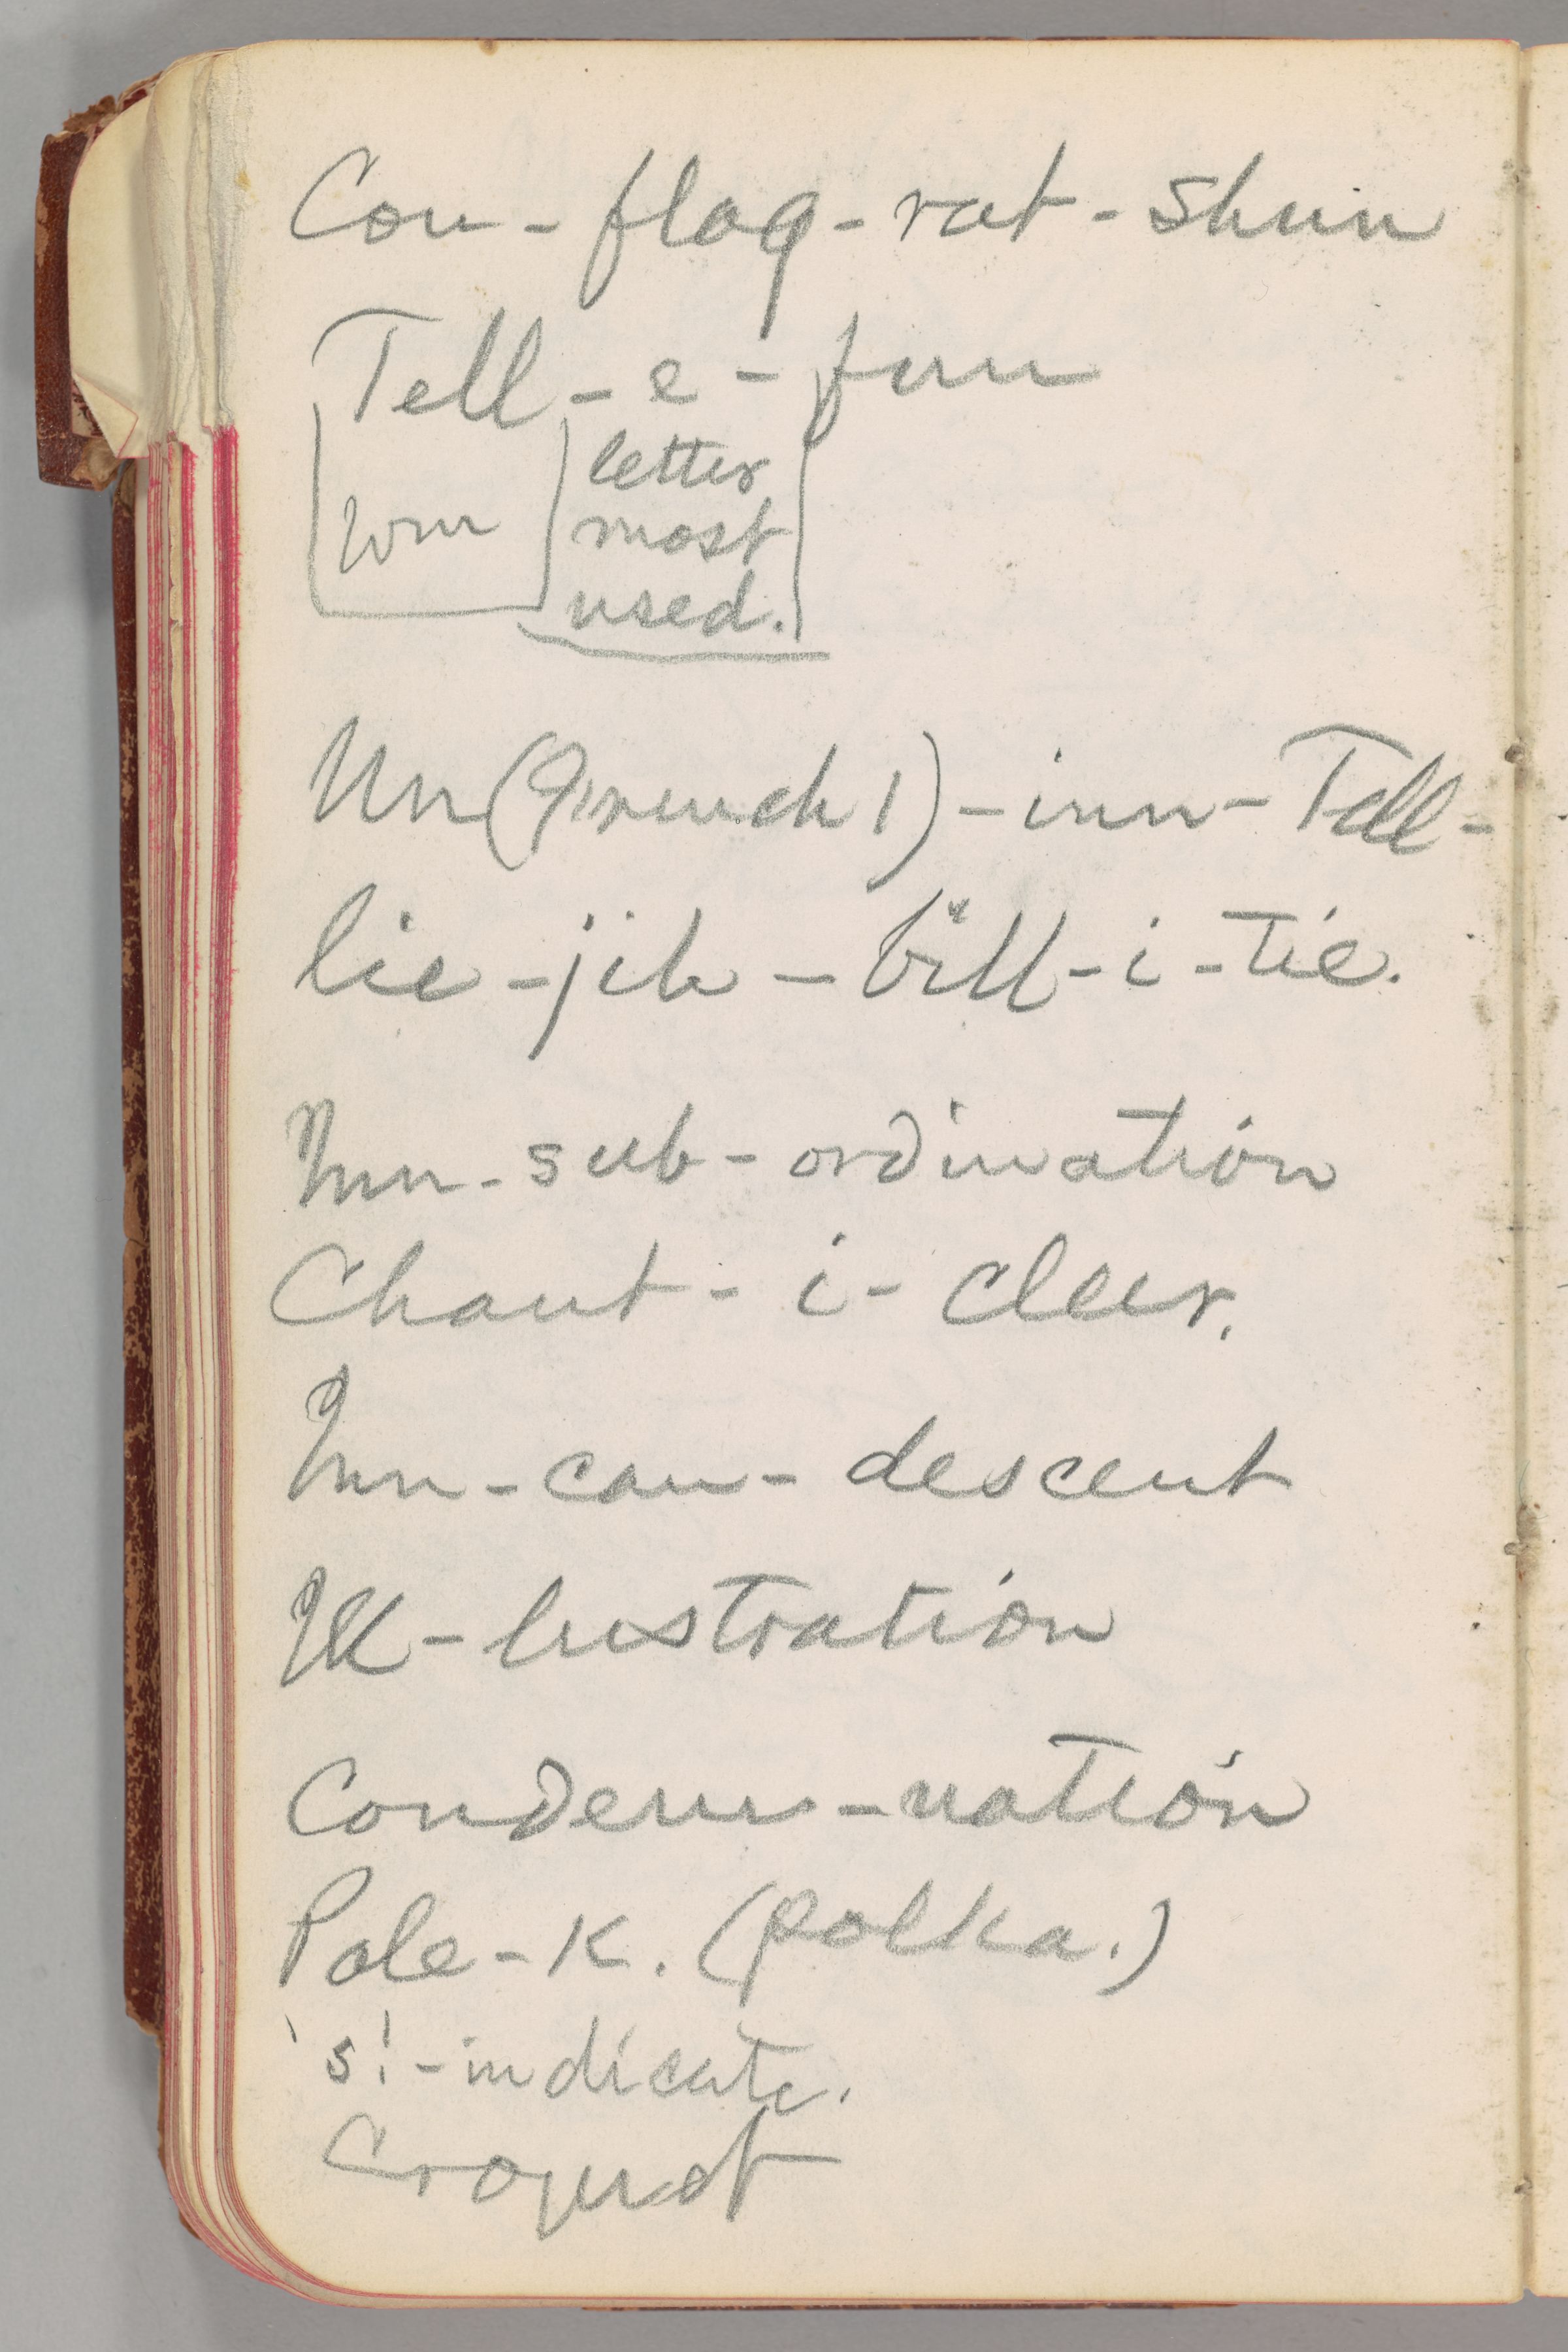 Con-flag-rat-shun
Tell-e-fun
letter
Wm most
used.
Un(French 1)-inn-Tell-
lie-jib-bill-i-tie.
Inn-sub-ordination
Chant-i-cleer.
Inn-can-descent
Ill-lustration
Condem-nation
Pole-K. (polka.)
's!-indicate.
Croquet